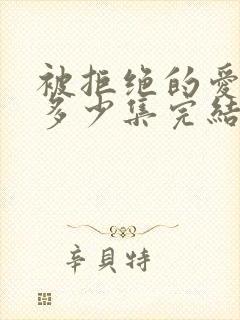 被拒绝的愛
多少集完結
辛貝特